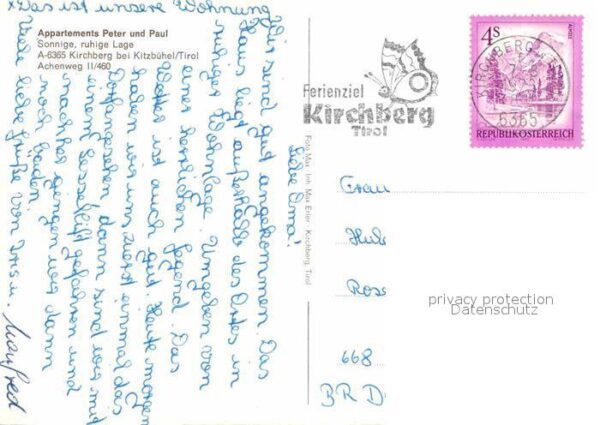 x Das ist unsere Wohnung
Appartements Peter und Paul
Sonnige, ruhige Lage
A-6365 Kirchberg bei Kitzbühel/Tirol
Achenweg II/460
Liebe Oma!
Wir sind gut angekommen. Das
Haus liegt außerhalb des Ortes in
ruhiger Wohnlage. Umgeben von
einer herrlichen Gegend. Das
Wetter ist auch gut. Heute morgen
haben wir uns zuerst einmal das
Dorf angesehen dann sind wir mit
einem Sessellift gefahren und
nachher gingen wir dann
noch baden.
Viele liebe Grüße von Iris u.
Manfred
Foto Max Inh. Max Erler, Kirchberg, Tirol
Ferienziel
Kirchberg
Tirol
KIRCHBERG
6365
4S
REPUBLIK ÖSTERREICH
Frau
Hub
Rose
668
BRD
privacy protection
Datenschutz